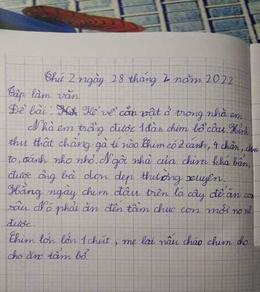 Thứ 2 ngày 28 tháng 2 năm 2022
Tập làm văn
Đề bài: Kể về con vật ở trong nhà em
Nhà em trồng được 1 đàn chim bồ câu. Hình
thù thật chẳng gà tí nào. Chim có 2 cánh, 4 chân,
to, cánh nho nhỏ. Ngôi nhà của chim khá bẩn,
được ông bà dọn dẹp thường xuyên.
Hằng ngày chim đậu trên lá cây để ăn con
sâu. Nó phải ăn đến tầm chục con mới no nê
được.
Chim lớn lớn 1 chút, mẹ lại nấu cháo chim cho
cho ăn tẩm bổ.